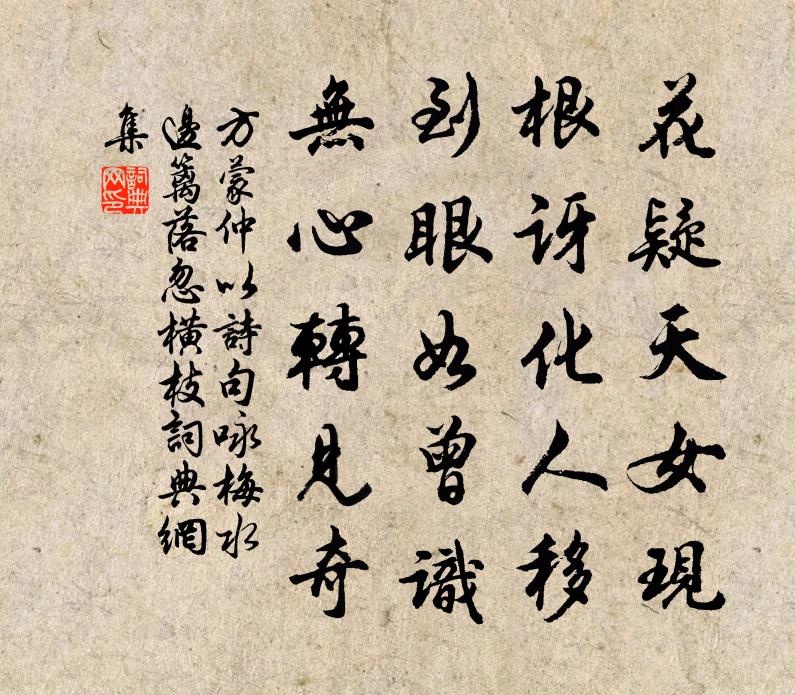 花疑天女現
根訝化人移
到眼如曾識
無心轉見奇
方蒙仲以詩句咏梅水
邊籬落忽橫枝詞典網
集
詞典網印